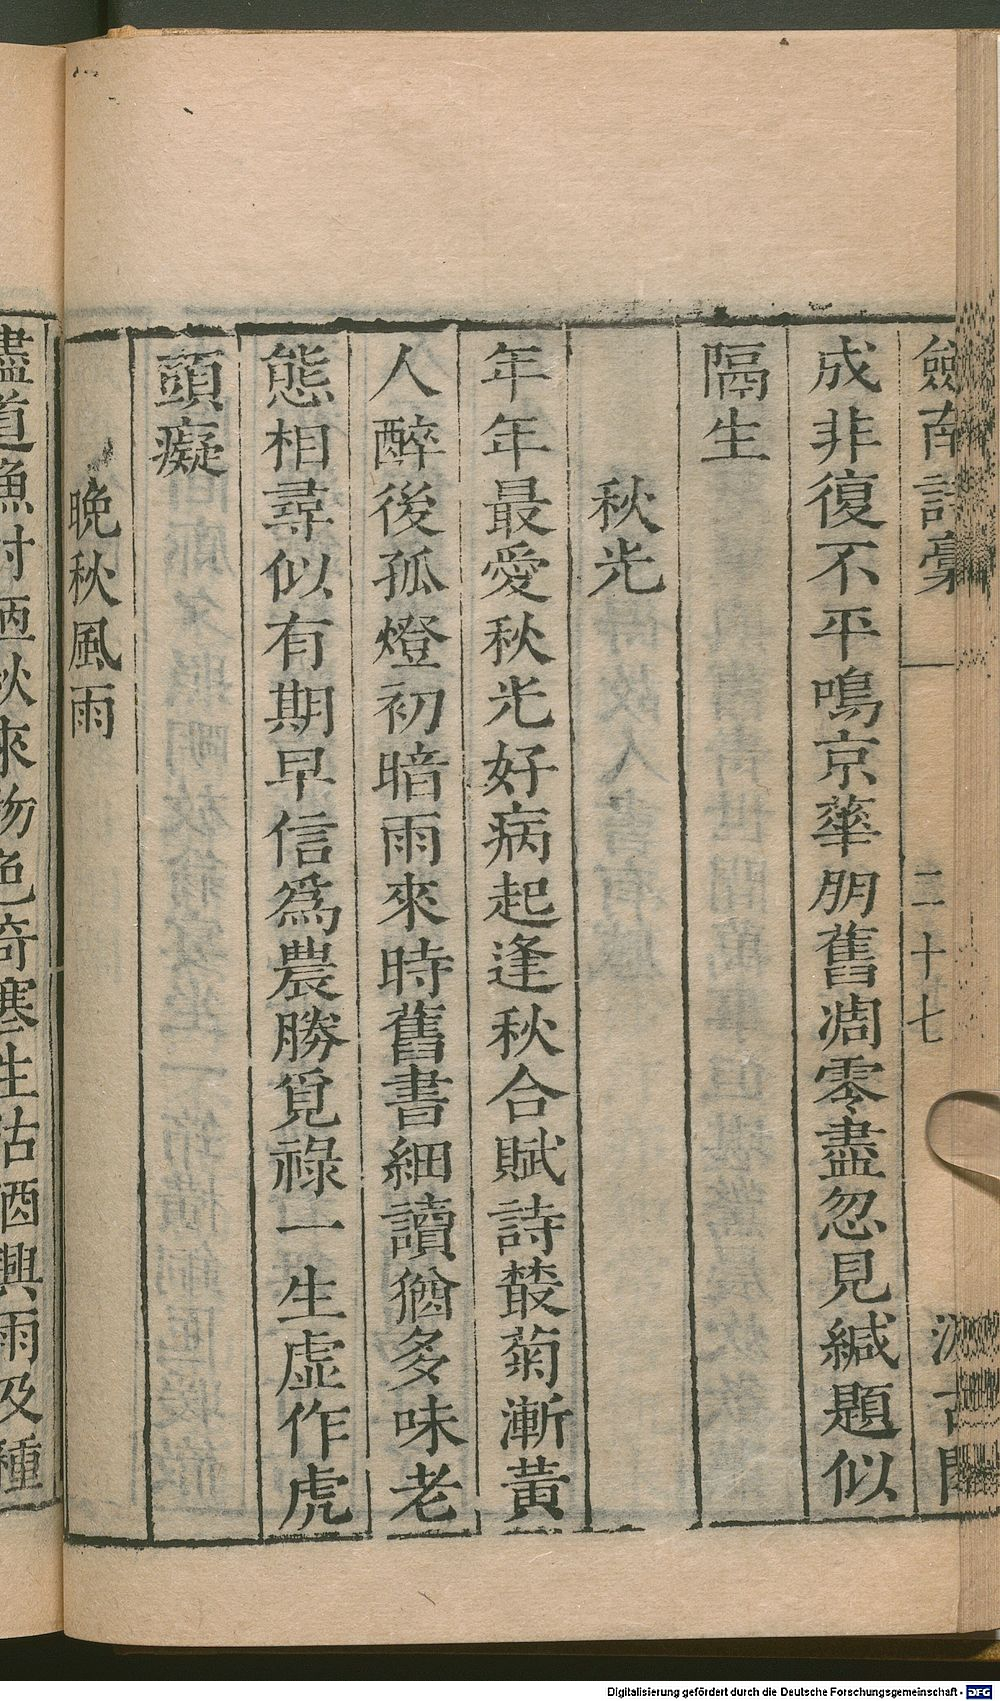 劍南詩稾
二十七
汲古閣
成非復不平鳴京華朋舊凋零盡忽見緘題似
隔生
秋光
年年最愛秋光好病起逢秋合賦詩叢菊漸黃
人醉後孤燈初暗雨來時舊書細讀猶多味老
態相尋似有期早信爲農勝覓祿一生虛作虎
頭癡
晚秋風雨
盡道漁村酒秋來物色奇寒生沽酒興雨及種
Digitalisierung gefördert durch die Deutsche Forschungsgemeinschaft - DFG